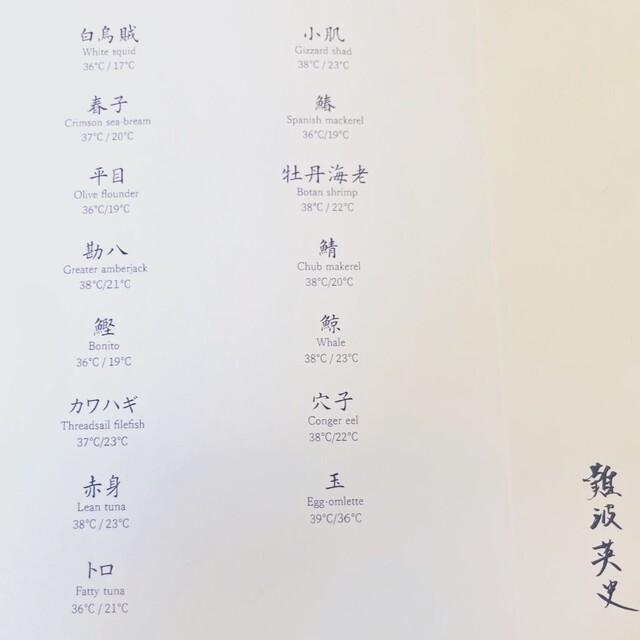 白烏賊
White squid
36℃ / 17℃
春子
Crimson sea-bream
37℃ / 20℃
平目
Olive flounder
36℃/19℃
勘八
Greater amberjack
38℃/21℃
鰹
Bonito
36℃ / 19℃
カワハギ
Threadsail filefish
37℃/23℃
赤身
Lean tuna
38℃ / 23℃
トロ
Fatty tuna
36℃ / 21℃
小肌
Gizzard shad
38℃ / 23℃
鰆
Spanish mackerel
36℃/19℃
牡丹海老
Botan shrimp
38℃ / 22℃
鯖
Chub makerel
38℃/20℃
鯨
Whale
38℃ / 23℃
穴子
Conger eel
38℃/22℃
玉
Egg-omlette
39℃/36℃
難波英史